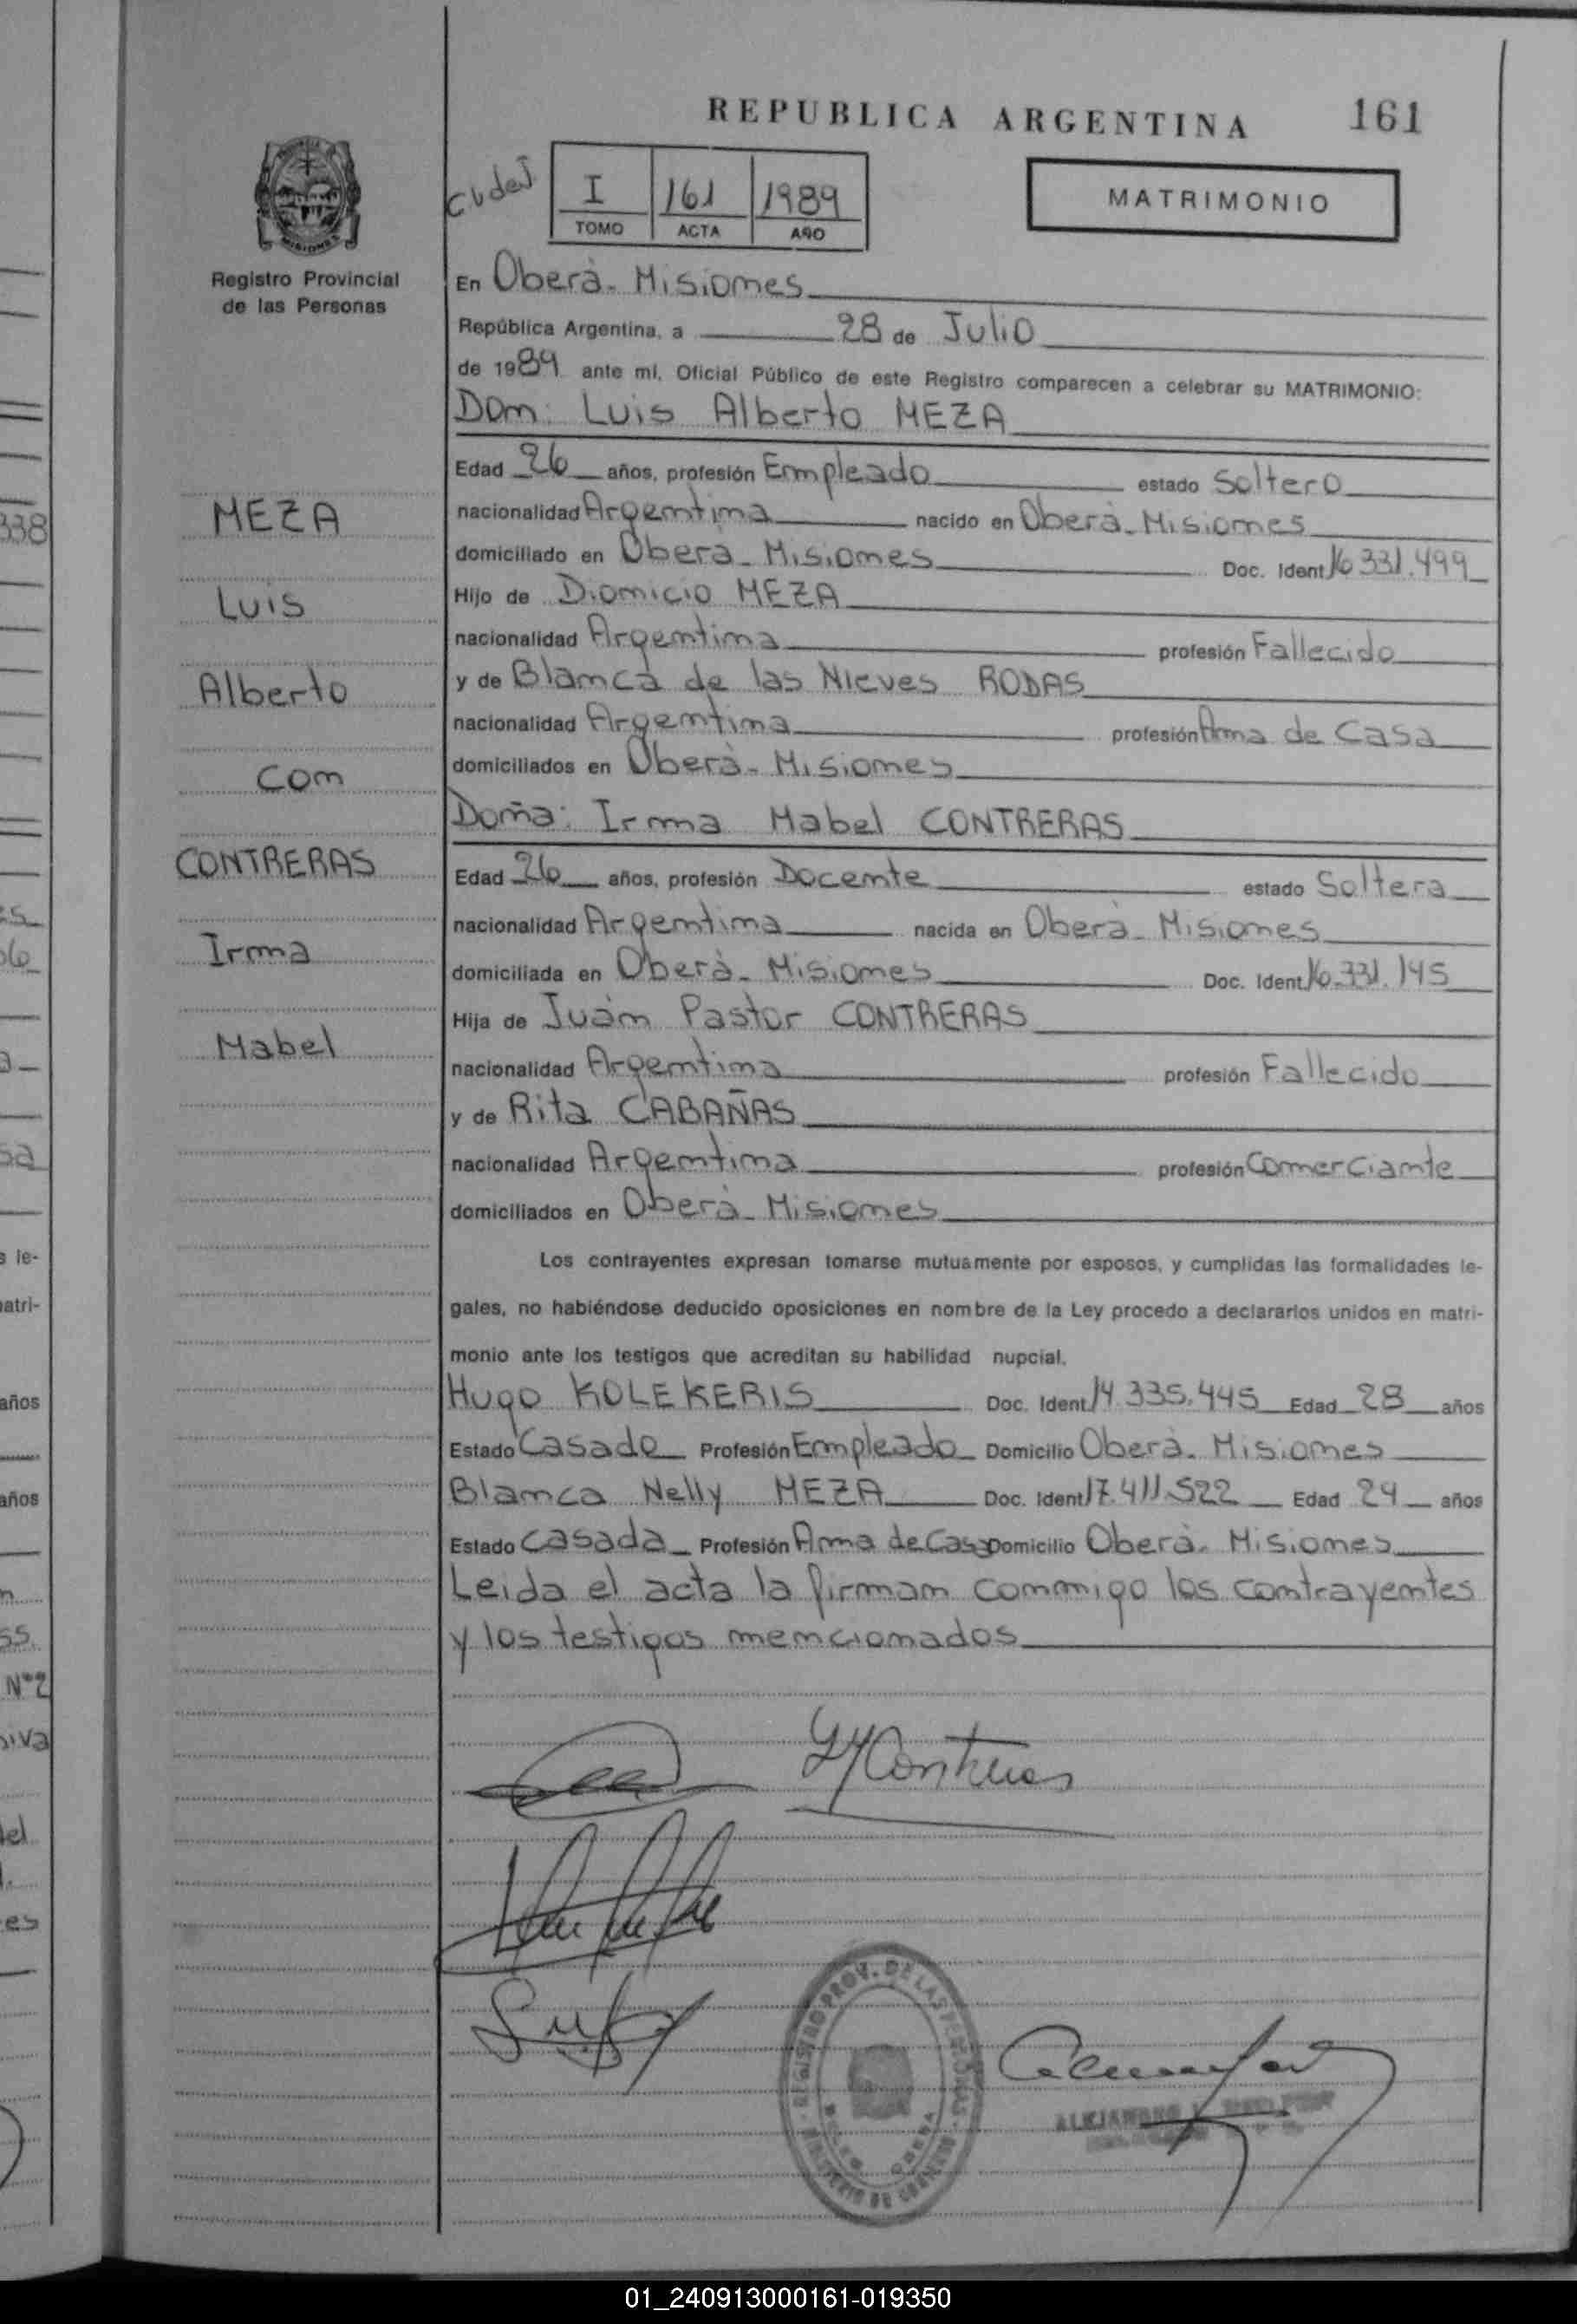 REPUBLICA ARGENTINA 161
I 161 1989
TOMO ACTA AÑO
MATRIMONIO
MISIONES
Registro Provincial
de las Personas
En Oberà - Misiones
República Argentina, a 28 de Julio
de 1989 ante mí, Oficial Público de este Registro comparecen a celebrar su MATRIMONIO:
Don: Luis Alberto MEZA
Edad 26 años, profesión Empleado estado Soltero
nacionalidad Argentina nacido en Oberà - Misiones
domiciliado en Oberà - Misiones Doc. Ident 16.331.499
Hijo de Dionicio MEZA
nacionalidad Argentina profesión Fallecido
y de Blanca de las Nieves RODAS
nacionalidad Argentina profesión Ama de Casa
domiciliados en Oberà - Misiones
Doña: Irma Mabel CONTRERAS
Edad 26 años, profesión Docente estado Soltera
nacionalidad Argentina nacida en Oberà - Misiones
domiciliada en Oberà - Misiones Doc. Ident 16.331.145
Hija de Juàn Pastor CONTRERAS
nacionalidad Argentina profesión Fallecido
y de Rita CABAÑAS
nacionalidad Argentina profesión Comerciante
domiciliados en Oberà - Misiones
MEZA
Luis
Alberto
Con
CONTRERAS
Irma
Mabel
Los contrayentes expresan tomarse mutuamente por esposos, y cumplidas las formalidades le-
gales, no habiéndose deducido oposiciones en nombre de la Ley procedo a declararlos unidos en matri-
monio ante los testigos que acreditan su habilidad nupcial.
Hugo KOLEKERIS Doc. Ident 14.335.445 Edad 28 años
Estado Casado Profesión Empleado Domicilio Oberà - Misiones
Blanca Nelly MEZA Doc. Ident 17.411.522 Edad 24 años
Estado Casada Profesión Ama de Casa Domicilio Oberà - Misiones
Leida el acta la firman conmigo los contrayentes
y los testigos mencionados
Contreras
REGISTRO PROV. DE LAS PERSONAS
01_240913000161-019350